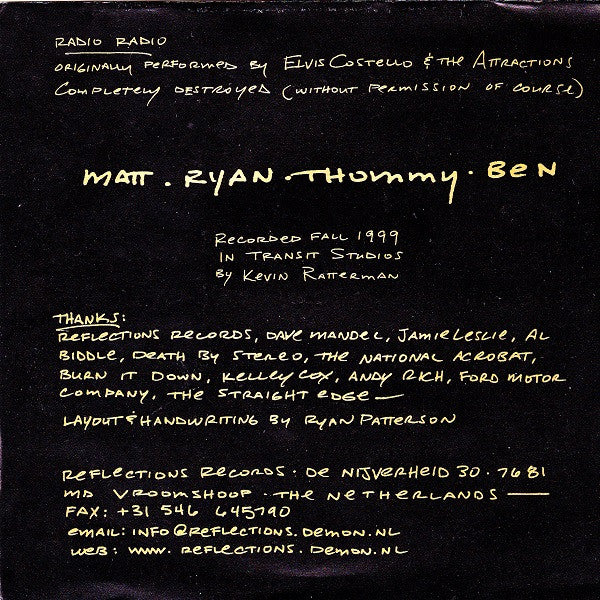 RADIO RADIO
ORIGINALLY PERFORMED BY ELVIS COSTELLO & THE ATTRACTIONS
COMPLETELY DESTROYED (WITHOUT PERMISSION OF COURSE)
MATT . RYAN . THOMMY . BEN
RECORDED FALL 1999
IN TRANSIT STUDIOS
BY KEVIN RATTERMAN
THANKS:
REFLECTIONS RECORDS, DAVE MANDEL, JAMIE LESLIE, AL
BIDDLE, DEATH BY STEREO, THE NATIONAL ACROBAT,
BURN IT DOWN, KELLEY COX, ANDY RICH, FORD MOTOR
COMPANY, THE STRAIGHT EDGE —
LAYOUT & HANDWRITING BY RYAN PATTERSON
REFLECTIONS RECORDS · DE NIJVERHEID 30 · 7681
MD VROOMSHOOP · THE NETHERLANDS —
FAX: +31 546 645790
EMAIL: INFO@REFLECTIONS.DEMON.NL
WEB: WWW.REFLECTIONS.DEMON.NL